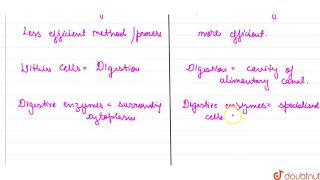 Less efficient method / process
more efficient.
Within cells = Digestion
Digestion = cavity of
alimentary canal.
Digestive enzymes = surroundng
cytoplasm
Digestive enzymes = specialised
cells
doubtnut